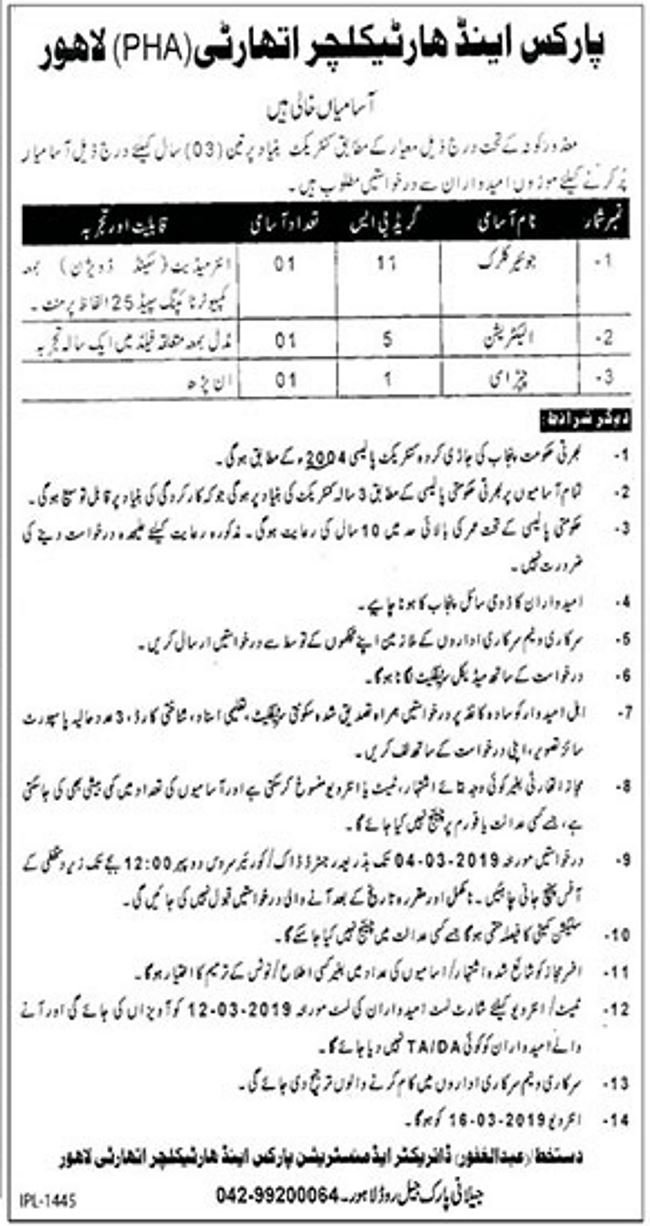 پارکس اینڈ ہارٹیکلچر اتھارٹی (PHA) لاہور
آسامیاں خالی ہیں
معذور کوٹہ کے تحت درج ذیل معیار کے مطابق کنٹریکٹ بنیاد پر تین (03) سال کیلئے درج ذیل آسامیاں
پُر کرنے کیلئے موزوں امیدواران سے درخواستیں مطلوب ہیں۔
نمبر شمار نام آسامی گریڈ بی ایس تعداد آسامی قابلیت اور تجربہ
1- جونیئر کلرک 11 01 انٹرمیڈیٹ (سیکنڈ ڈویژن) بمعہ
کمپیوٹر ٹائپنگ سپیڈ 25 الفاظ پر منٹ۔
2- الیکٹریشن 5 01 مڈل بمعہ متعلقہ فیلڈ میں ایک سالہ تجربہ
3- چپڑاسی 1 01 ان پڑھ
دیگر شرائط:
1- بھرتی حکومت پنجاب کی جاری کردہ کنٹریکٹ پالیسی 2004ء کے مطابق ہوگی۔
2- تمام آسامیوں پر بھرتی حکومتی پالیسی کے مطابق 3 سالہ کنٹریکٹ کی بنیاد پر ہوگی جو کہ کارکردگی کی بنیاد پر قابل توسیع ہوگی۔
3- حکومتی پالیسی کے تحت عمر کی بالائی حد میں 10 سال کی رعایت ہوگی۔ مذکورہ رعایت کیلئے علیحدہ درخواست دینے کی
ضرورت نہیں۔
4- امیدواران کا ڈومی سائل پنجاب کا ہونا چاہیے۔
5- سرکاری و نیم سرکاری اداروں کے ملازمین اپنے محکموں کے توسط سے درخواستیں ارسال کریں۔
6- درخواست کے ساتھ میڈیکل سرٹیفکیٹ لگانا ہوگا۔
7- اہل امیدوار کو سادہ کاغذ پر درخواستیں ہمراہ تصدیق شدہ سکونتی سرٹیفکیٹ، تعلیمی اسناد، شناختی کارڈ، 3 عدد حالیہ پاسپورٹ
سائز تصویر، اپنی درخواست کے ساتھ لف کریں۔
8- مجاز اتھارٹی بغیر کوئی وجہ بتائے اشتہار، ٹیسٹ یا انٹرویو منسوخ کر سکتی ہے اور آسامیوں کی تعداد میں کمی بیشی بھی کی جا سکتی
ہے، جسے کسی عدالت یا فورم پر چیلنج نہیں کیا جائے گا۔
9- درخواستیں مورخہ 04-03-2019 تک بذریعہ رجسٹرڈ ڈاک/کورئیر سروس دوپہر 12:00 بجے تک زیر دستخطی کے
آفس پہنچ جانی چاہئیں۔ نامکمل اور مقررہ تاریخ کے بعد آنے والی درخواستیں قبول نہیں کی جائیں گی۔
10- سلیکشن کمیٹی کا فیصلہ حتمی ہوگا جسے کسی عدالت میں چیلنج نہیں کیا جائے گا۔
11- افسر مجاز کو شائع شدہ اشتہار/اسامیوں کی تعداد میں بغیر کسی اطلاع/نوٹس کے ترمیم کا اختیار ہوگا۔
12- ٹیسٹ/انٹرویو کیلئے شارٹ لسٹ امیدواران کی لسٹ مورخہ 12-03-2019 کو آویزاں کی جائے گی اور آنے
والے امیدواران کو کوئی TA/DA نہیں دیا جائے گا۔
13- سرکاری و نیم سرکاری اداروں میں کام کرنے والوں کو ترجیح دی جائے گی۔
14- انٹرویو 16-03-2019 کو ہوگا۔
دستخط/(عبدالغفور) ڈائریکٹر ایڈمنسٹریشن پارکس اینڈ ہارٹیکلچر اتھارٹی لاہور
جیلانی پارک جیل روڈ لاہور۔ 042-99200064
IPL-1445